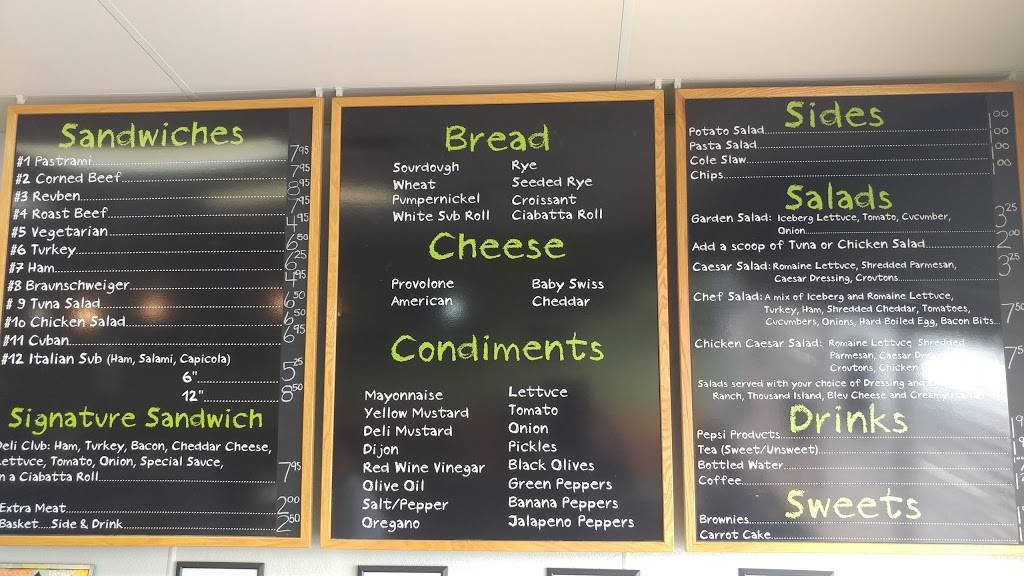 Sandwiches
#1 Pastrami 7.95
#2 Corned Beef 7.95
#3 Reuben 8.95
#4 Roast Beef 7.95
#5 Vegetarian 4.95
#6 Turkey 6.50
#7 Ham 6.25
#8 Braunschweiger 4.95
# 9 Tuna Salad 6.50
#10 Chicken Salad 6.50
#11 Cuban 6.95
#12 Italian Sub (Ham, Salami, Capicola)
6" 5.25
12" 8.50
Signature Sandwich
Deli Club: Ham, Turkey, Bacon, Cheddar Cheese,
Lettuce, Tomato, Onion, Special Sauce,
on a Ciabatta Roll 7.95
Extra Meat 2.00
Basket....Side & Drink 2.50
Bread
Sourdough Rye
Wheat Seeded Rye
Pumpernickel Croissant
White Sub Roll Ciabatta Roll
Cheese
Provolone Baby Swiss
American Cheddar
Condiments
Mayonnaise Lettuce
Yellow Mustard Tomato
Deli Mustard Onion
Dijon Pickles
Red Wine Vinegar Black Olives
Olive Oil Green Peppers
Salt/Pepper Banana Peppers
Oregano Jalapeno Peppers
Sides
Potato Salad 1.00
Pasta Salad 1.00
Cole Slaw 1.00
Chips 1.00
Salads
Garden Salad: Iceberg Lettuce, Tomato, Cucumber,
Onion 3.25
Add a scoop of Tuna or Chicken Salad 2.00
Caesar Salad: Romaine Lettuce, Shredded Parmesan,
Caesar Dressing, Croutons 3.25
Chef Salad: A mix of Iceberg and Romaine Lettuce,
Turkey, Ham, Shredded Cheddar, Tomatoes,
Cucumbers, Onions, Hard Boiled Egg, Bacon Bits 7.50
Chicken Caesar Salad: Romaine Lettuce, Shredded
Parmesan, Caesar
Croutons, Chicken
Salads served with your choice of Dressing and
Ranch, Thousand Island, Blev Cheese and Creamy
Drinks
Pepsi Products
Tea (Sweet/Unsweet)
Bottled Water
Coffee
Sweets
Brownies
Carrot Cake